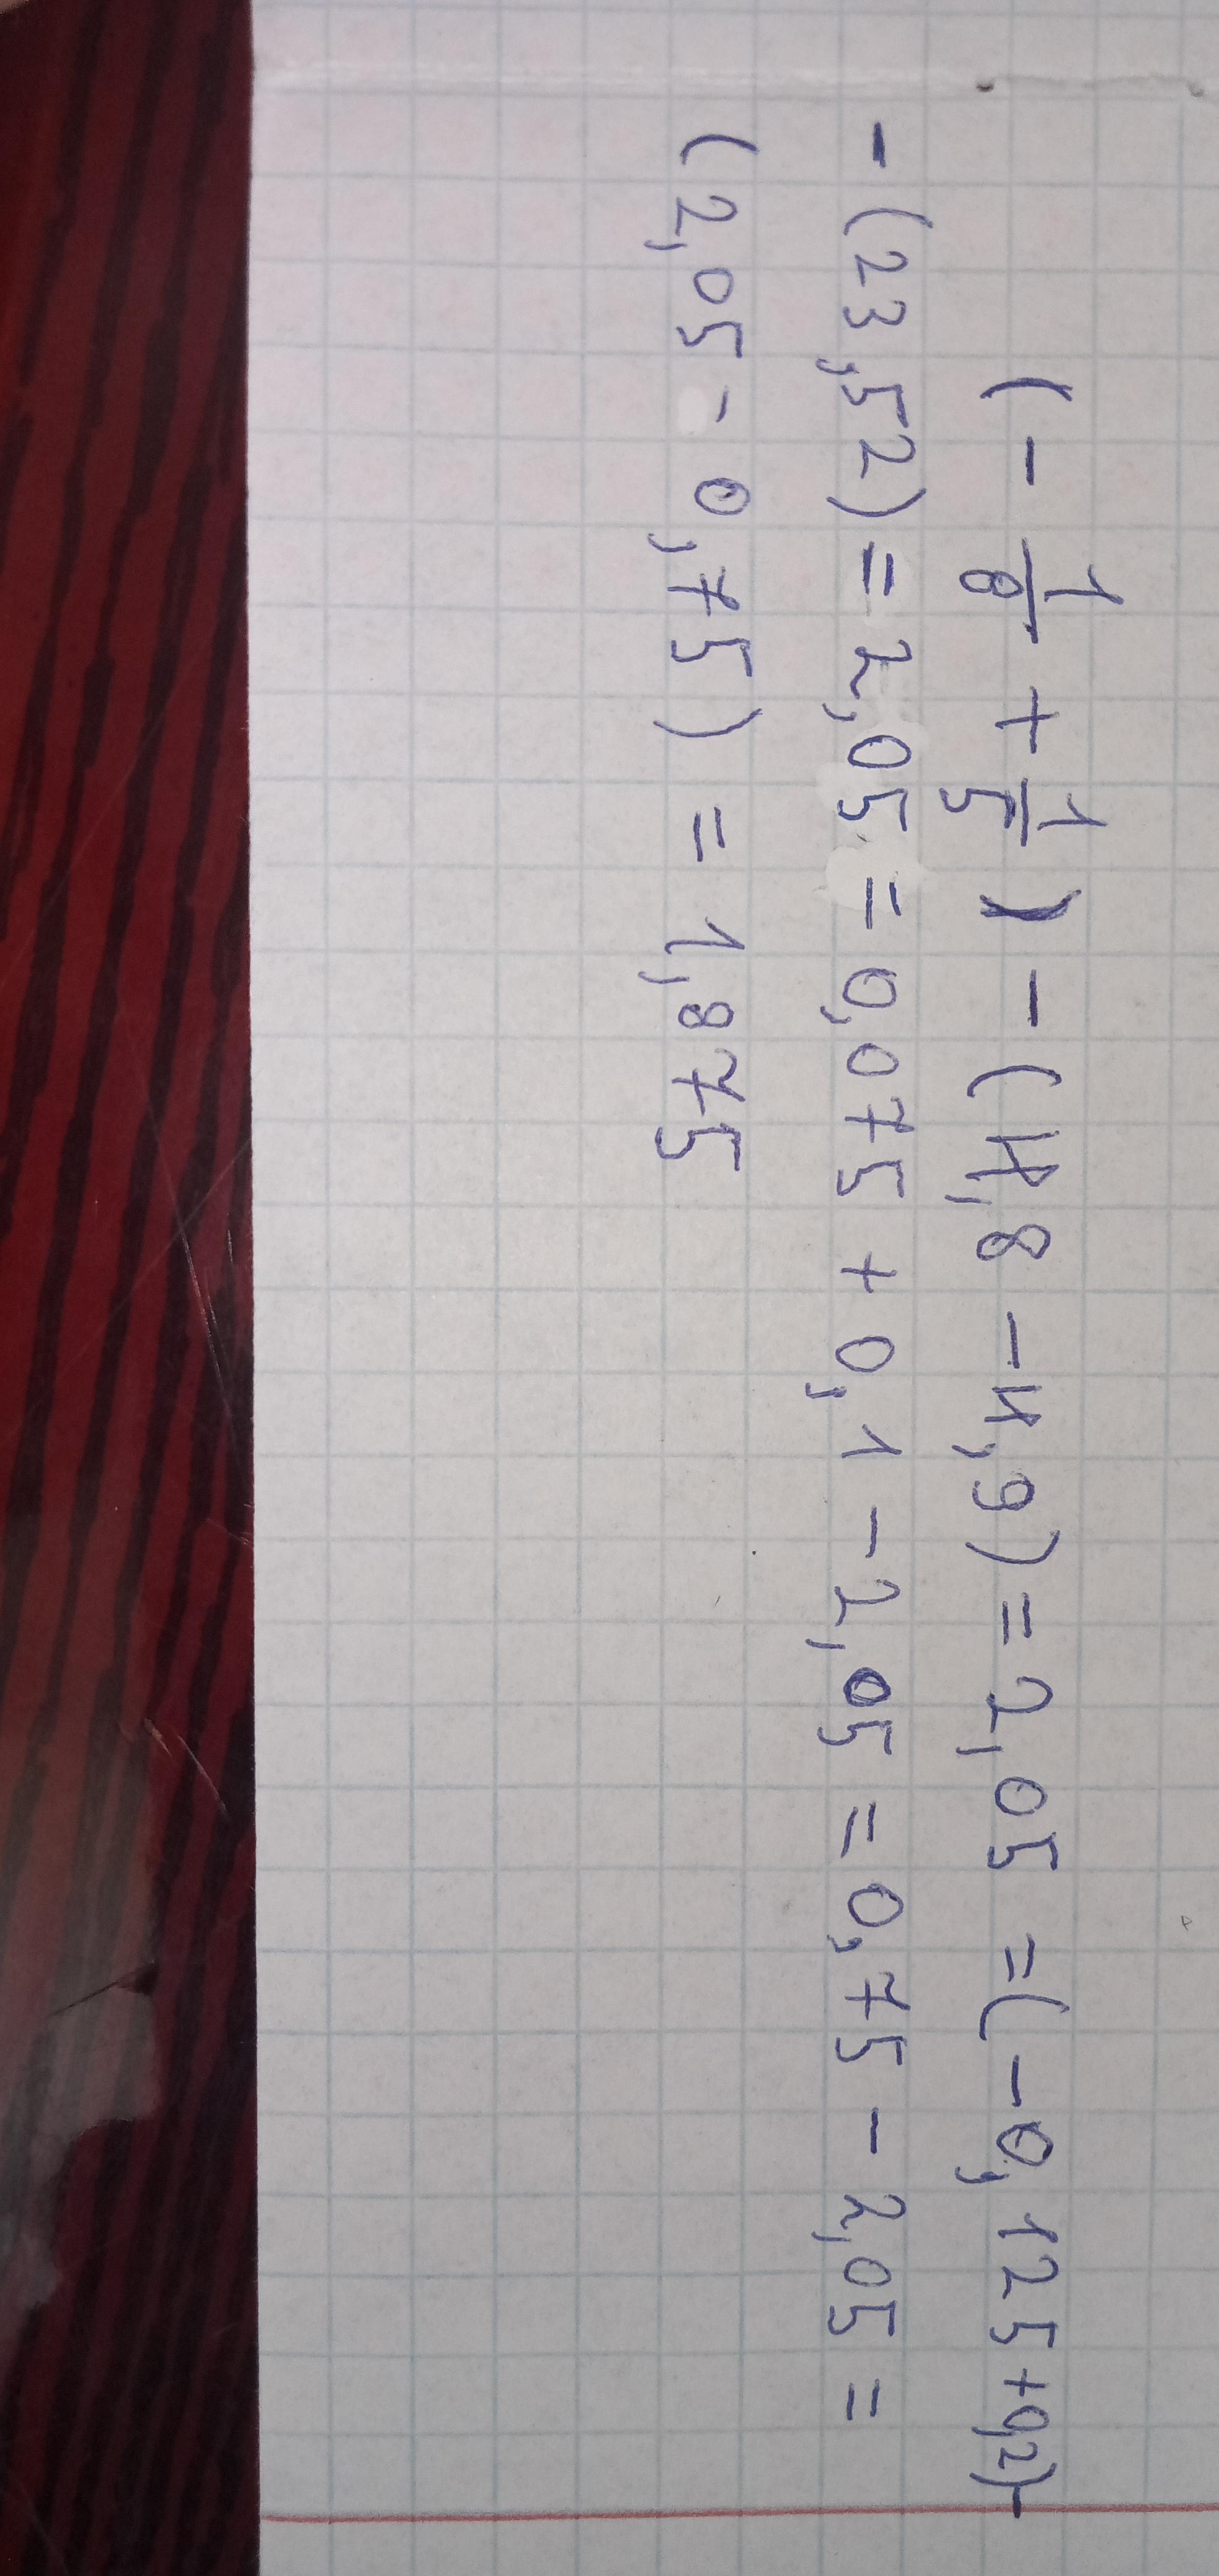 (- 1/8 + 1/5) - (4,8 - 4,9) = 2,05 = (-0,125 + 0,2) -
- (23,52) = 2,05 = 0,075 + 0,1 - 2,05 = 0,75 - 2,05 =
(2,05 - 0,75) = 1,875